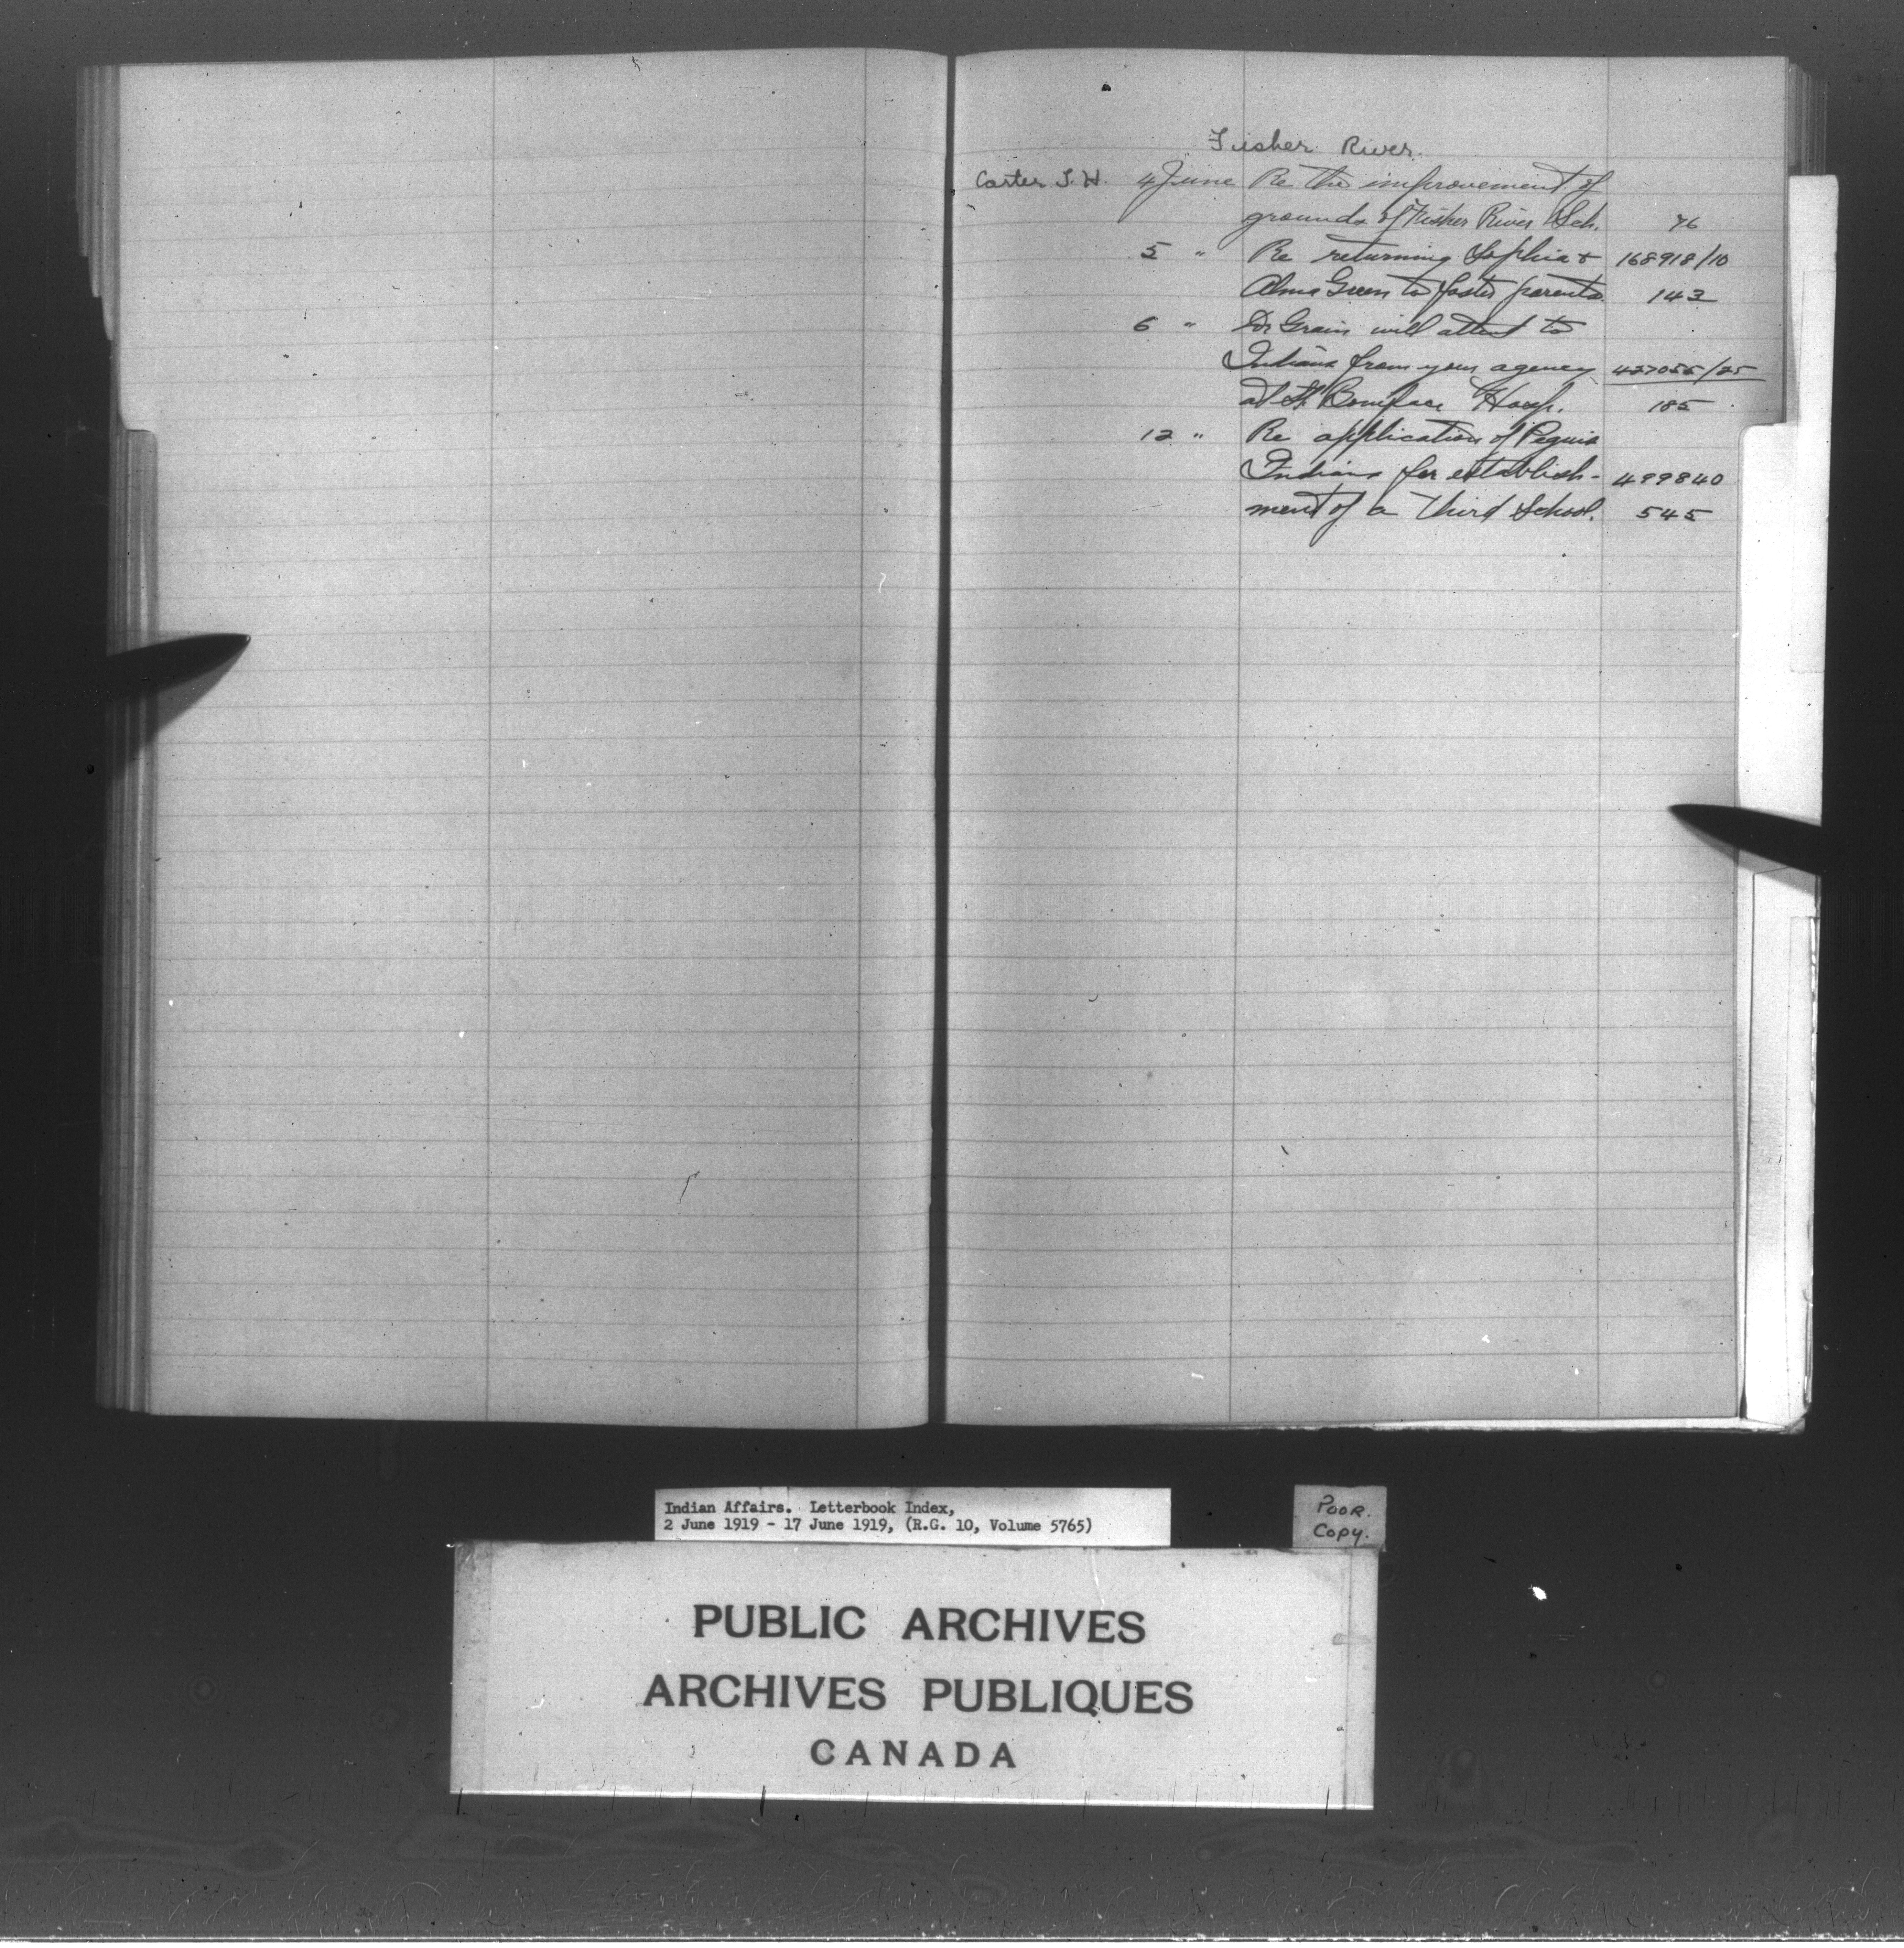 Fisher River.
Carter T. H. 4 June Re the improvement of
grounds of Fisher River Sch. 76
5 " Re returning Sophia & 168918/10
Alma Green to foster parents. 143
6 " Dr Grain will attend to
Indians from your agency 427055/25
at St. Boniface Hosp. 185
12 " Re application of Peguis
Indians for establish- 499840
ment of a third School. 545
Indian Affairs. Letterbook Index,
2 June 1919 - 17 June 1919, (R.G. 10, Volume 5765)
POOR.
COPY.
PUBLIC ARCHIVES
ARCHIVES PUBLIQUES
CANADA